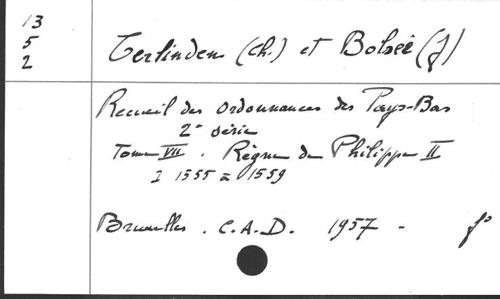 13
5
2
Terlinden (Ch.) et Bolsée (J)
Recueil des ordonnances des Pays-Bas
2e série
Tome VII. Règne de Philippe II
I 1555 à 1559
Bruxelles. C.A.D. 1957 - fo